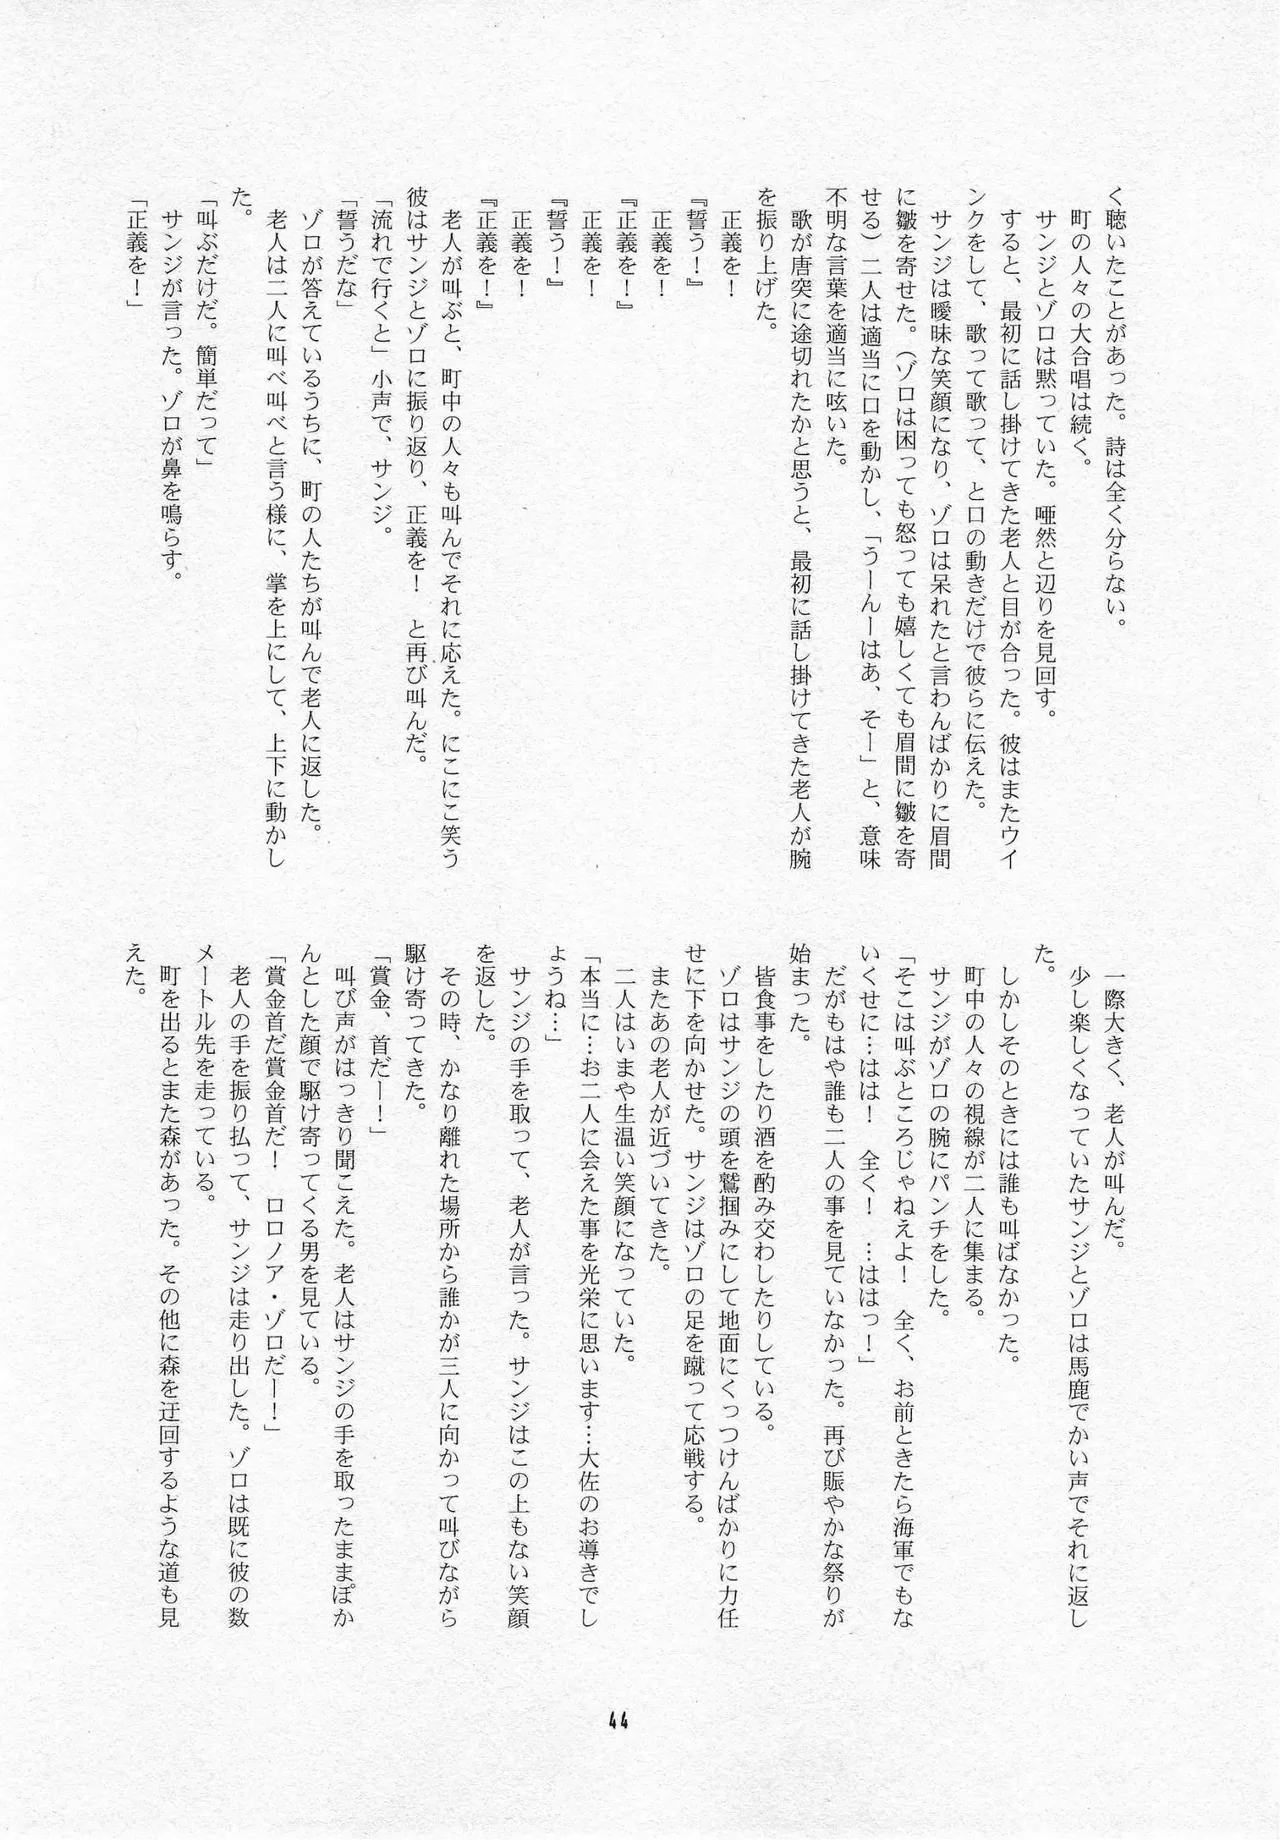 く聴いたことがあった。詩は全く分らない。
　町の人々の大合唱は続く。
　サンジとゾロは黙っていた。唖然と辺りを見回す。
　すると、最初に話し掛けてきた老人と目が合った。彼はまたウイ
ンクをして、歌って歌って、と口の動きだけで彼らに伝えた。
　サンジは曖昧な笑顔になり、ゾロは呆れたと言わんばかりに眉間
に皺を寄せた。（ゾロは困っても怒っても嬉しくても眉間に皺を寄
せる）二人は適当に口を動かし、「うーんーはあ、そー」と、意味
不明な言葉を適当に呟いた。
　歌が唐突に途切れたかと思うと、最初に話し掛けてきた老人が腕
を振り上げた。
　正義を！
『誓う！』
　正義を！
『正義を！』
　正義を！
『誓う！』
　正義を！
『正義を！』
　老人が叫ぶと、町中の人々も叫んでそれに応えた。にこにこ笑う
彼はサンジとゾロに振り返り、正義を！　と再び叫んだ。
「流れで行くと」小声で、サンジ。
「誓うだな」
　ゾロが答えているうちに、町の人たちが叫んで老人に返した。
　老人は二人に叫べ叫べと言う様に、掌を上にして、上下に動かし
た。
「叫ぶだけだ。簡単だって」
　サンジが言った。ゾロが鼻を鳴らす。
「正義を！」
　一際大きく、老人が叫んだ。
　少し楽しくなっていたサンジとゾロは馬鹿でかい声でそれに返し
た。
　しかしそのときには誰も叫ばなかった。
　町中の人々の視線が二人に集まる。
　サンジがゾロの腕にパンチをした。
「そこは叫ぶところじゃねえよ！　全く、お前ときたら海軍でもな
いくせに…はは！　全く！　…ははっ！」
　だがもはや誰も二人の事を見ていなかった。再び賑やかな祭りが
始まった。
　皆食事をしたり酒を酌み交わしたりしている。
　ゾロはサンジの頭を鷲掴みにして地面にくっつけんばかりに力任
せに下を向かせた。サンジはゾロの足を蹴って応戦する。
　またあの老人が近づいてきた。
　二人はいまや生温い笑顔になっていた。
「本当に…お二人に会えた事を光栄に思います…大佐のお導きでし
ょうね…」
　サンジの手を取って、老人が言った。サンジはこの上もない笑顔
を返した。
　その時、かなり離れた場所から誰かが三人に向かって叫びながら
駆け寄ってきた。
「賞金、首だー！」
　叫び声がはっきり聞こえた。老人はサンジの手を取ったままぽか
んとした顔で駆け寄ってくる男を見ている。
「賞金首だ賞金首だ！　ロロノア・ゾロだー！」
　老人の手を振り払って、サンジは走り出した。ゾロは既に彼の数
メートル先を走っている。
　町を出るとまた森があった。その他に森を迂回するような道も見
えた。
44